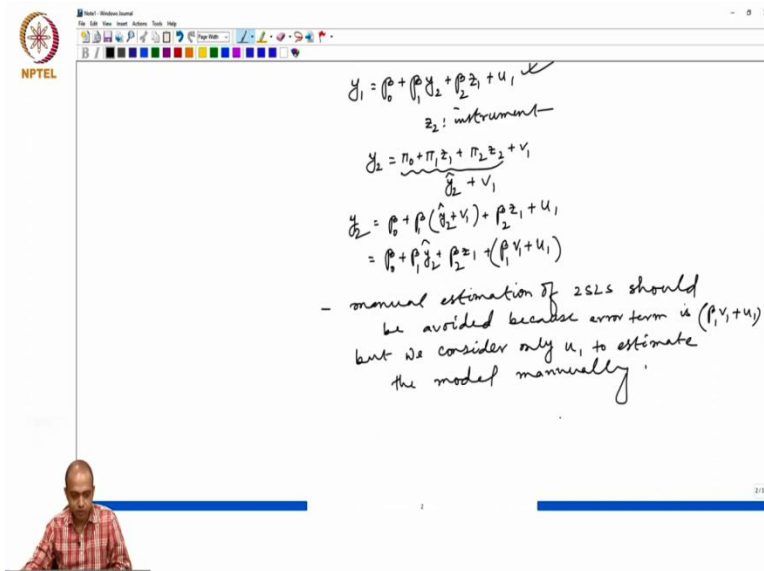 Note1 - Windows Journal
File Edit View Insert Actions Tools Help
Page Width
B I
NPTEL
y₁ = β₀ + β₁y₂ + β₂z₁ + u₁ ✓
z₂: instrument
y₂ = π₀ + π₁z₁ + π₂z₂ + v₁
ŷ₂ + v₁
y₂ = β₀ + β₁(ŷ₂ + v₁) + β₂z₁ + u₁
= β₀ + β₁ŷ₂ + β₂z₁ + (β₁v₁ + u₁)
- manual estimation of 2SLS should
be avoided because error term is (β₁v₁ + u₁)
but we consider only u₁ to estimate
the model mannually.
2